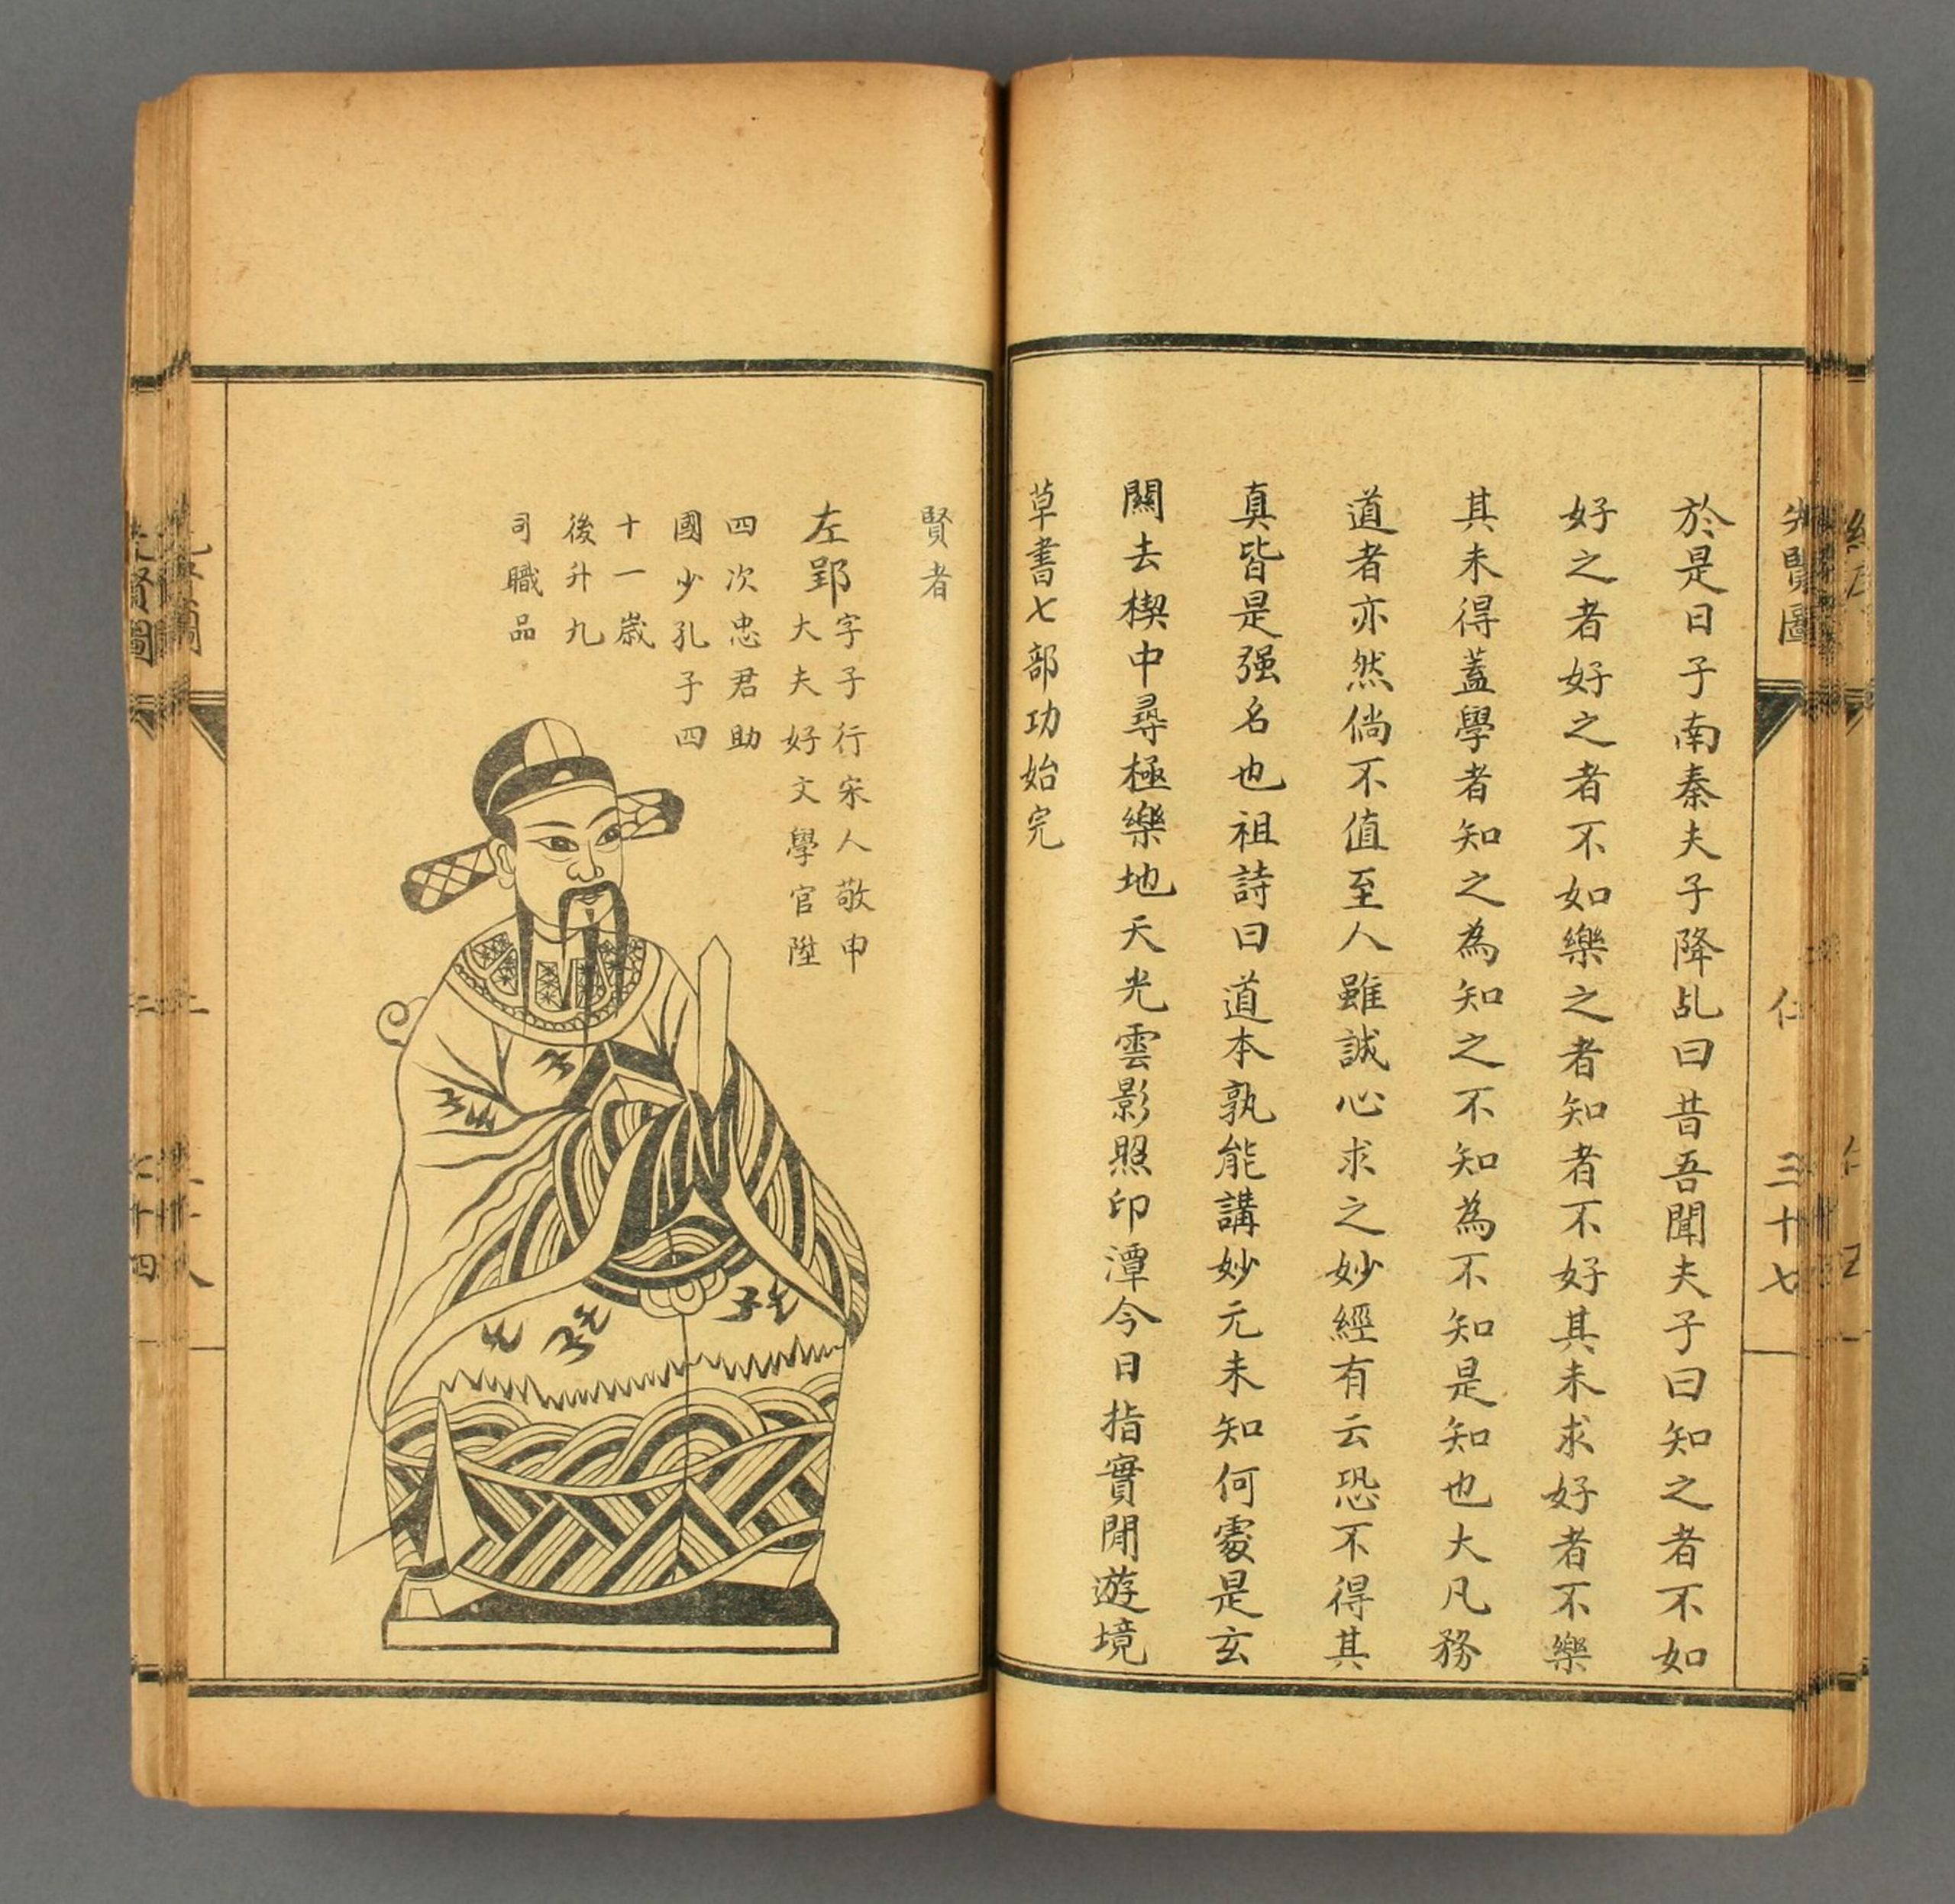 先賢圖
仁
三十七
於是日子南秦夫子降乩曰昔吾聞夫子曰知之者不如
好之者好之者不如樂之者知者不好其未求好者不樂
其未得蓋學者知之為知之不知為不知是知也大凡務
道者亦然倘不值至人雖誠心求之妙經有云恐不得其
真皆是强名也祖詩曰道本孰能講妙元未知何處是玄
關去楔中尋極樂地天光雲影照印潭今日指實閒遊境
草書七部功始完
賢者
左郢
字子行宋人敬申
大夫好文學官陞
四次忠君助
國少孔子四
十一歲
後升九
司職品